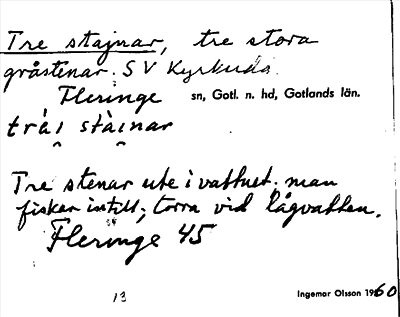 Tre stajnar, tre stora
gråstenar. SV Kyrkudd.
Fleringe sn, Gotl. n. hd, Gotlands län.
träi stäinar
Tre stenar ute i vattnet. man
fisker intill; torra vid lågvatten.
Fleringe 45
13
Ingemar Olsson 1960